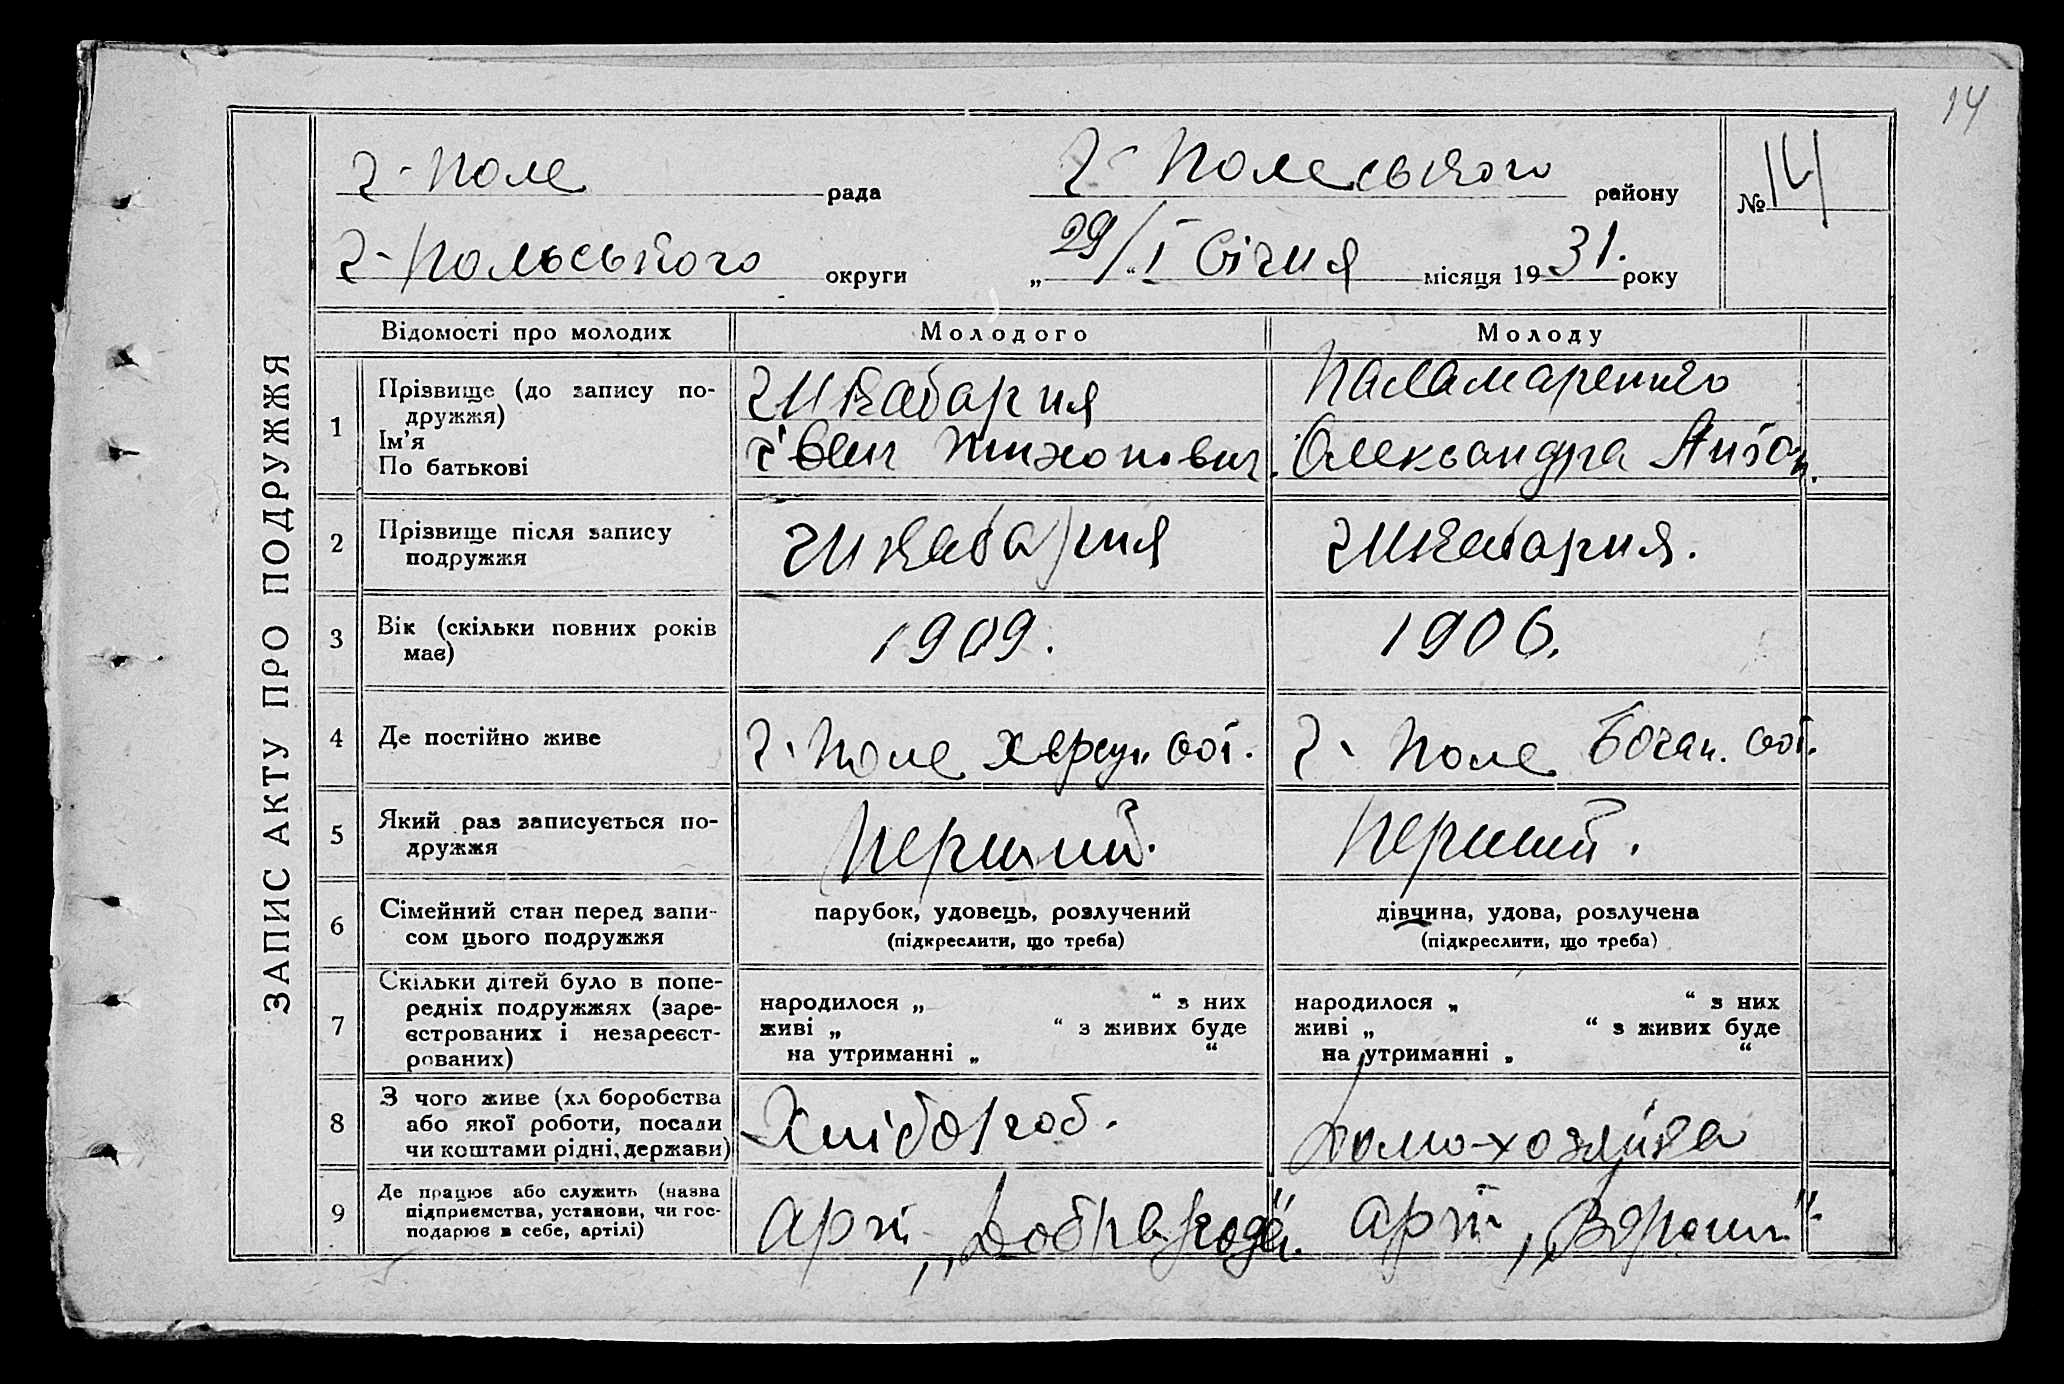 14
Г-Поле рада
Г-Полеського району
№ 14
Г-Польського округи
„29/“ I Січня місяця 1931. року
ЗАПИС АКТУ ПРО ПОДРУЖЖЯ
Відомості про молодих
Молодого
Молоду
1
Прізвище (до запису по-
дружжя)
Ім'я
По батькові
Паламаренко
Тихонович.
Олександра Антон.
2
Прізвище після запису
подружжя
3
Вік (скільки повних років
має)
1909.
1906.
4
Де постійно живе
Г-Поле Херсун. сот.
Г-Поле Бочан. сот.
5
Який раз записується по-
дружжя
Перший.
Перший.
6
Сімейний стан перед запи-
сом цього подружжя
парубок, удовець, розлучений
(підкреслити, що треба)
дівчина, удова, розлучена
(підкреслити, що треба)
7
Скільки дітей було в попе-
редніх подружжях (заре-
єстрованих і незареєст-
рованих)
народилося „ “ з них
живі „ “ з живих буде
на утриманні „ “
народилося „ “ з них
живі „ “ з живих буде
на утриманні „ “
8
З чого живе (хл боробства
або якої роботи, посади
чи коштами рідні, держави)
Хлібороб.
Домо-хозяйка
9
Де працює або служить (назва
підприємства, установи, чи гос-
подарює в себе, артілі)
Арт.
Арт.